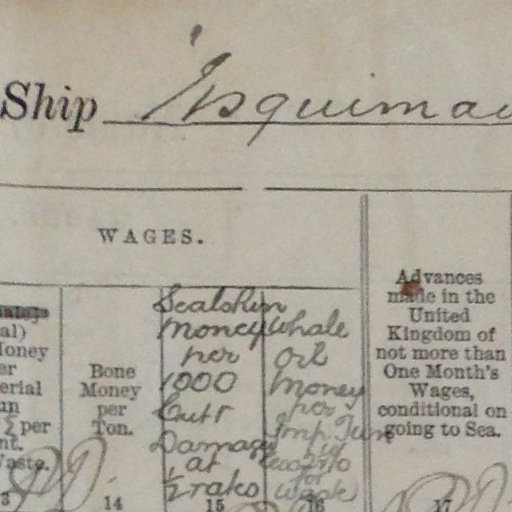 Ship Esquimau
WAGES.
al)
Money
er
erial
un
½ per
nt.
Waste.
Bone
Money
per
Ton.
14
Sealskin
money
per
1000
Cutt
Damage
at
½ rates
15
Whale
oil
money
per
Imp. Tun
16
Advances
made in the
United
Kingdom of
not more than
One Month's
Wages,
conditional on
going to Sea.
17